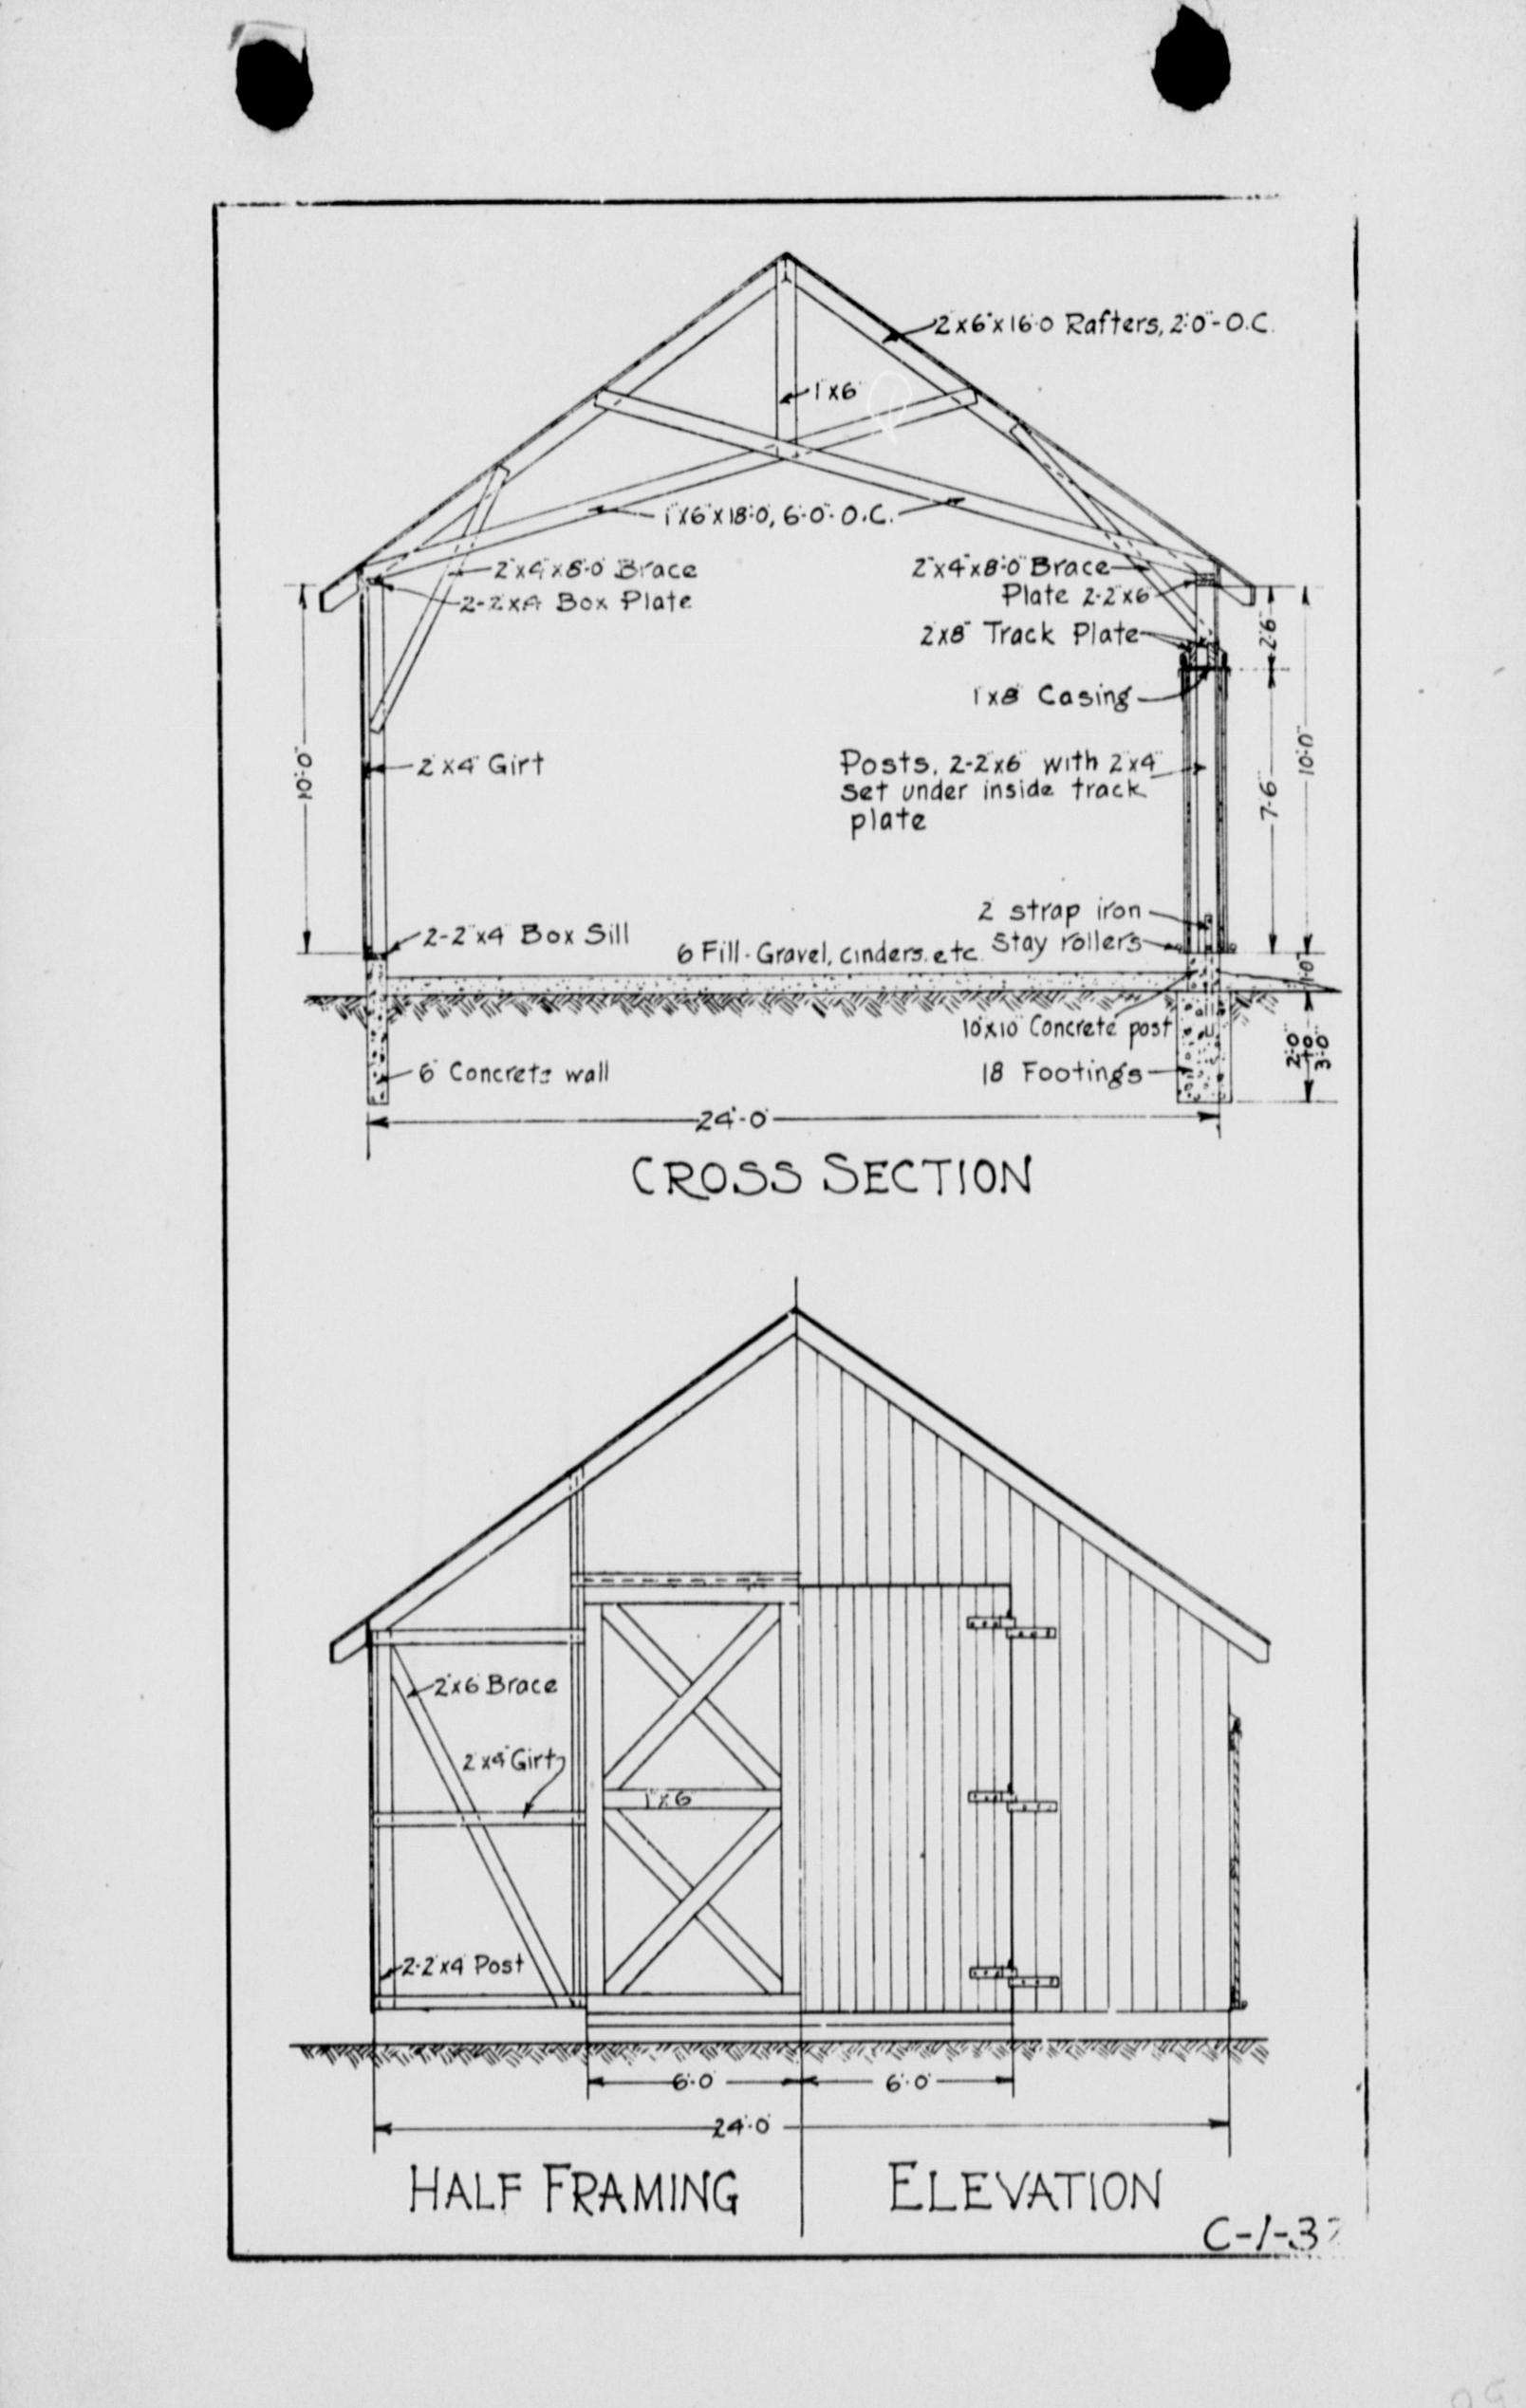 2"x6"x16'-0 Rafters, 2'-0"-O.C.
1"x6"
1"x6"x18'-0, 6'-0"-O.C.
2"x4"x8'-0 Brace
2-2"x4 Box Plate
2"x4"x8'-0" Brace
Plate 2-2"x6"
2x8" Track Plate
1"x8" Casing
2'-6"
10'-0"
2"x4" Girt
Posts, 2-2"x6" with 2"x4"
set under inside track
plate
7'-6"
10'-0"
2-2"x4" Box Sill
2 strap iron
Stay rollers
6 Fill - Gravel, cinders, etc.
1'-0"
10"x10" Concrete post
6" Concrete wall
18 Footings
2'-0"
to
3'-0"
24'-0
CROSS SECTION
2"x6 Brace
2"x4" Girt
1"x6
2-2"x4 Post
6'-0
6'-0
24'-0
HALF FRAMING
ELEVATION